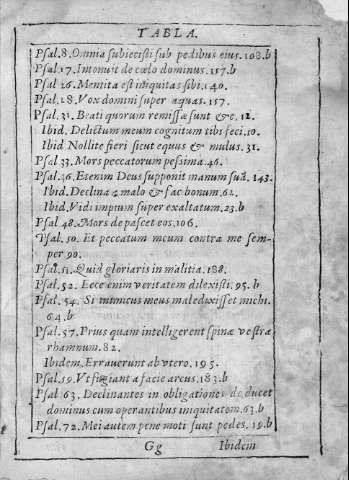 TABLA.
Psal.8. Omnia subiecisti sub pedibus eius. 108.b
Psal.17. Intonuit de cœlo dominus. 157.b
Psal 26. Mentita est iniquitas sibi. 140.
Psal.28. Vox domini super aquas. 157.
Psal.31. Beati quorum remissæ sunt &c. 12.
Ibid. Delictum meum cognitum tibi feci. 10.
Ibid Nollite fieri sicut equus & mulus. 31.
Psal 33. Mors peccatorum pessima. 46.
Psal.36. Etenim Deus supponit manum suã. 143.
Ibid. Declina a malo & fac bonum. 62.
Ibid. Vidi impium super exaltatum. 23.b
Psal 48. Mors depascet eos. 106.
Psal. 50. Et peccatum meum contra me sem-
per 90.
Psal.51. Quid gloriaris in malitia. 188.
Psal.52. Ecce enim veritatem dilexisti. 95. b
Psal. 54. Si inimicus meus maledixisset michi.
64.b
Psal.57. Prius quam intelligerent spinæ vestræ
rhamnum. 82.
Ibidem. Errauerunt ab vtero. 195.
Psal.59. Vt fugiant a facie arcus. 183.b
Psal 63. Declinantes in obligationes deducet
dominus cum operantibus iniquitatem. 63.b
Psal.72. Mei autem pene moti sunt pedes. 19.b
Gg Ibidem